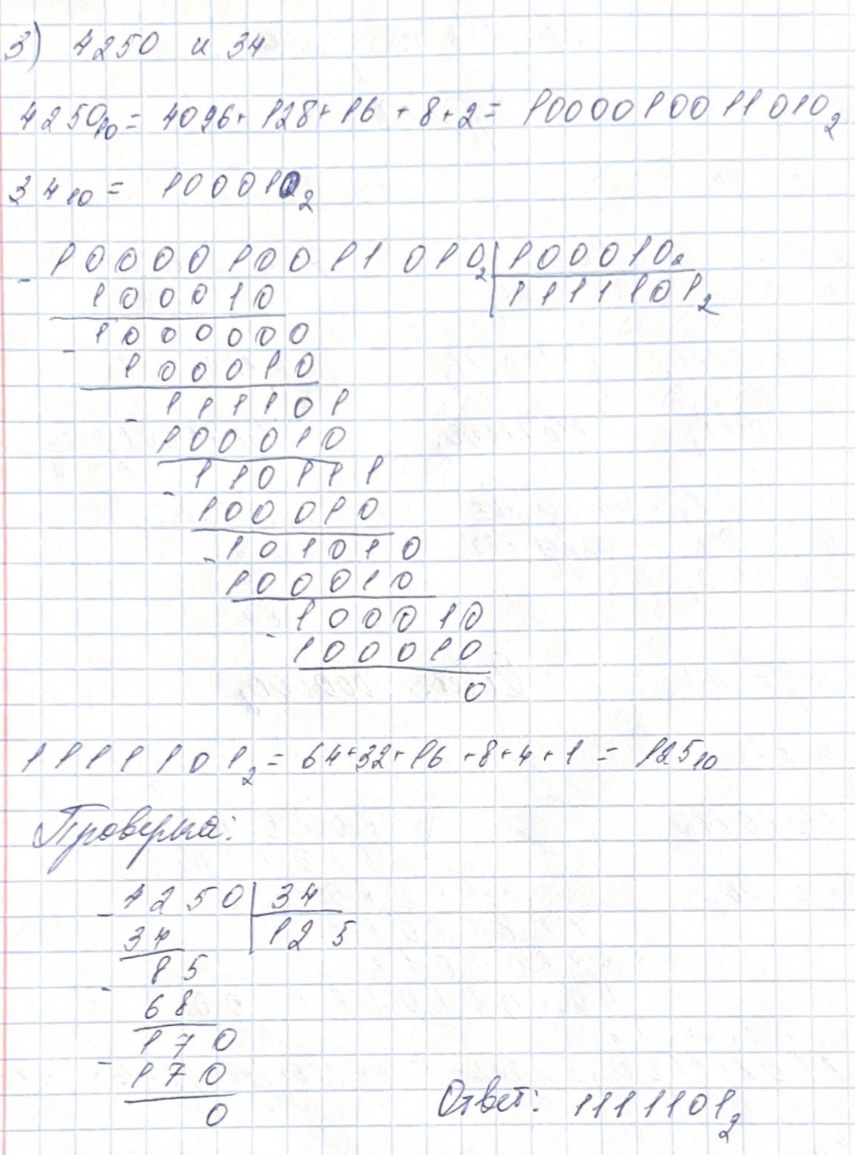 3) 4250 и 34
4250₁₀ = 4096 + 128 + 16 + 8 + 2 = 1000010011010₂
34₁₀ = 100010₂
- 1000010011010₂ | 100010₂
100010 | 1111101₂
- 1000000
100010
- 111101
100010
- 110111
100010
- 101010
100010
- 100010
100010
0
1111101₂ = 64 + 32 + 16 + 8 + 4 + 1 = 125₁₀
Проверка:
- 4250 | 34
34 | 125
- 85
68
- 170
170
0
Ответ: 1111101₂